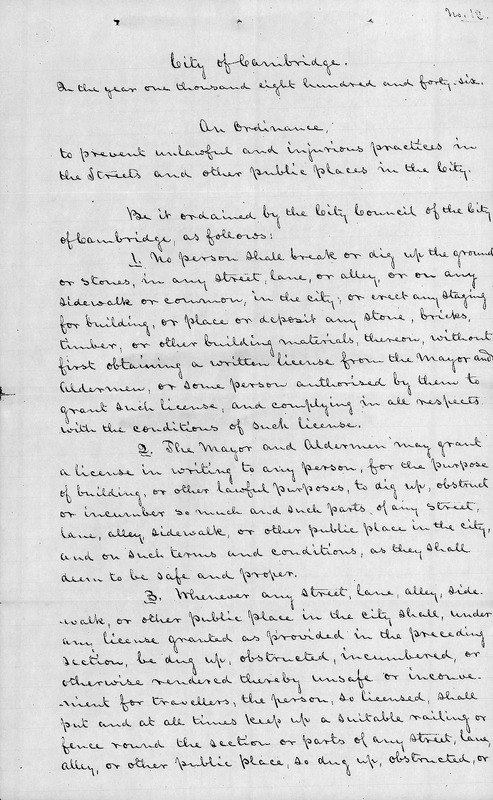 No. 12.
City of Cambridge.
In the year one thousand eight hundred and forty-six.
An Ordinance,
to prevent unlawful and injurious practices in
the Streets and other public places in the City.
Be it ordained by the City Council of the City
of Cambridge, as follows:
1. No person shall break or dig up the ground
or stones, in any street, lane, or alley, or on any
sidewalk or common, in the city; or erect any staging
for building, or place or deposit any stone, bricks,
timber, or other building materials, thereon, without
first obtaining a written license from the Mayor and
Aldermen, or some person authorised by them to
grant such license, and complying in all respects
with the conditions of such license.
2. The Mayor and Aldermen may grant
a license in writing to any person, for the purpose
of building, or other lawful purposes, to dig up, obstruct
or incumber so much and such parts of any street,
lane, alley, sidewalk, or other public place in the city,
and on such terms and conditions, as they shall
deem to be safe and proper.
3. Whenever any street, lane, alley, side-
-walk, or other public place in the city shall, under
any license granted as provided in the preceding
section, be dug up, obstructed, incumbered, or
otherwise rendered thereby unsafe or inconve-
-nient for travellers, the person, so licensed, shall
put and at all times keep up a suitable railing or
fence round the section or parts of any street, lane,
alley, or other public place, so dug up, obstructed, or